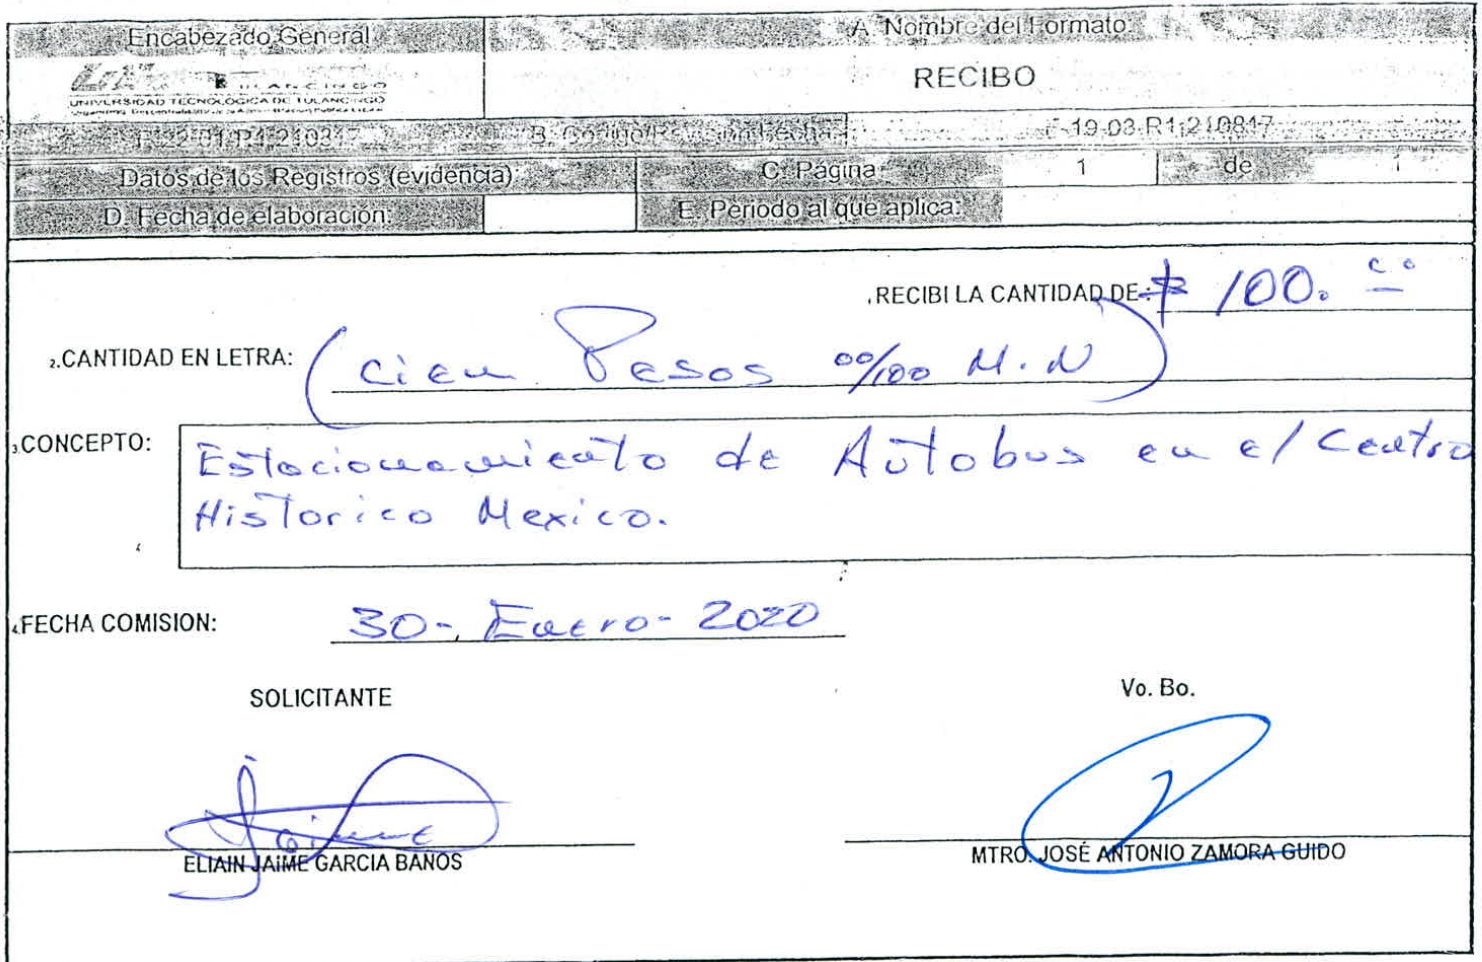 Encabezado General
A. Nombre del Formato:
UNIVERSIDAD TECNOLÓGICA DE TULANCINGO
RECIBO
B. Código/Revisión/Fecha: F-19-03-R1-210817
Datos de los Registros (evidencia): C. Página: 1 de 1
D. Fecha de elaboración: E. Periodo al que aplica:
1.RECIBI LA CANTIDAD DE: $ 100. 00
2.CANTIDAD EN LETRA: (Cien Pesos 00/100 M.N)
3.CONCEPTO: Estacionamiento de Autobus en el Centro
Historico Mexico.
4.FECHA COMISION: 30-Enero-2020
SOLICITANTE
Vo. Bo.
Jaime
ELIAIN JAIME GARCIA BAÑOS
MTRO. JOSÉ ANTONIO ZAMORA GUIDO